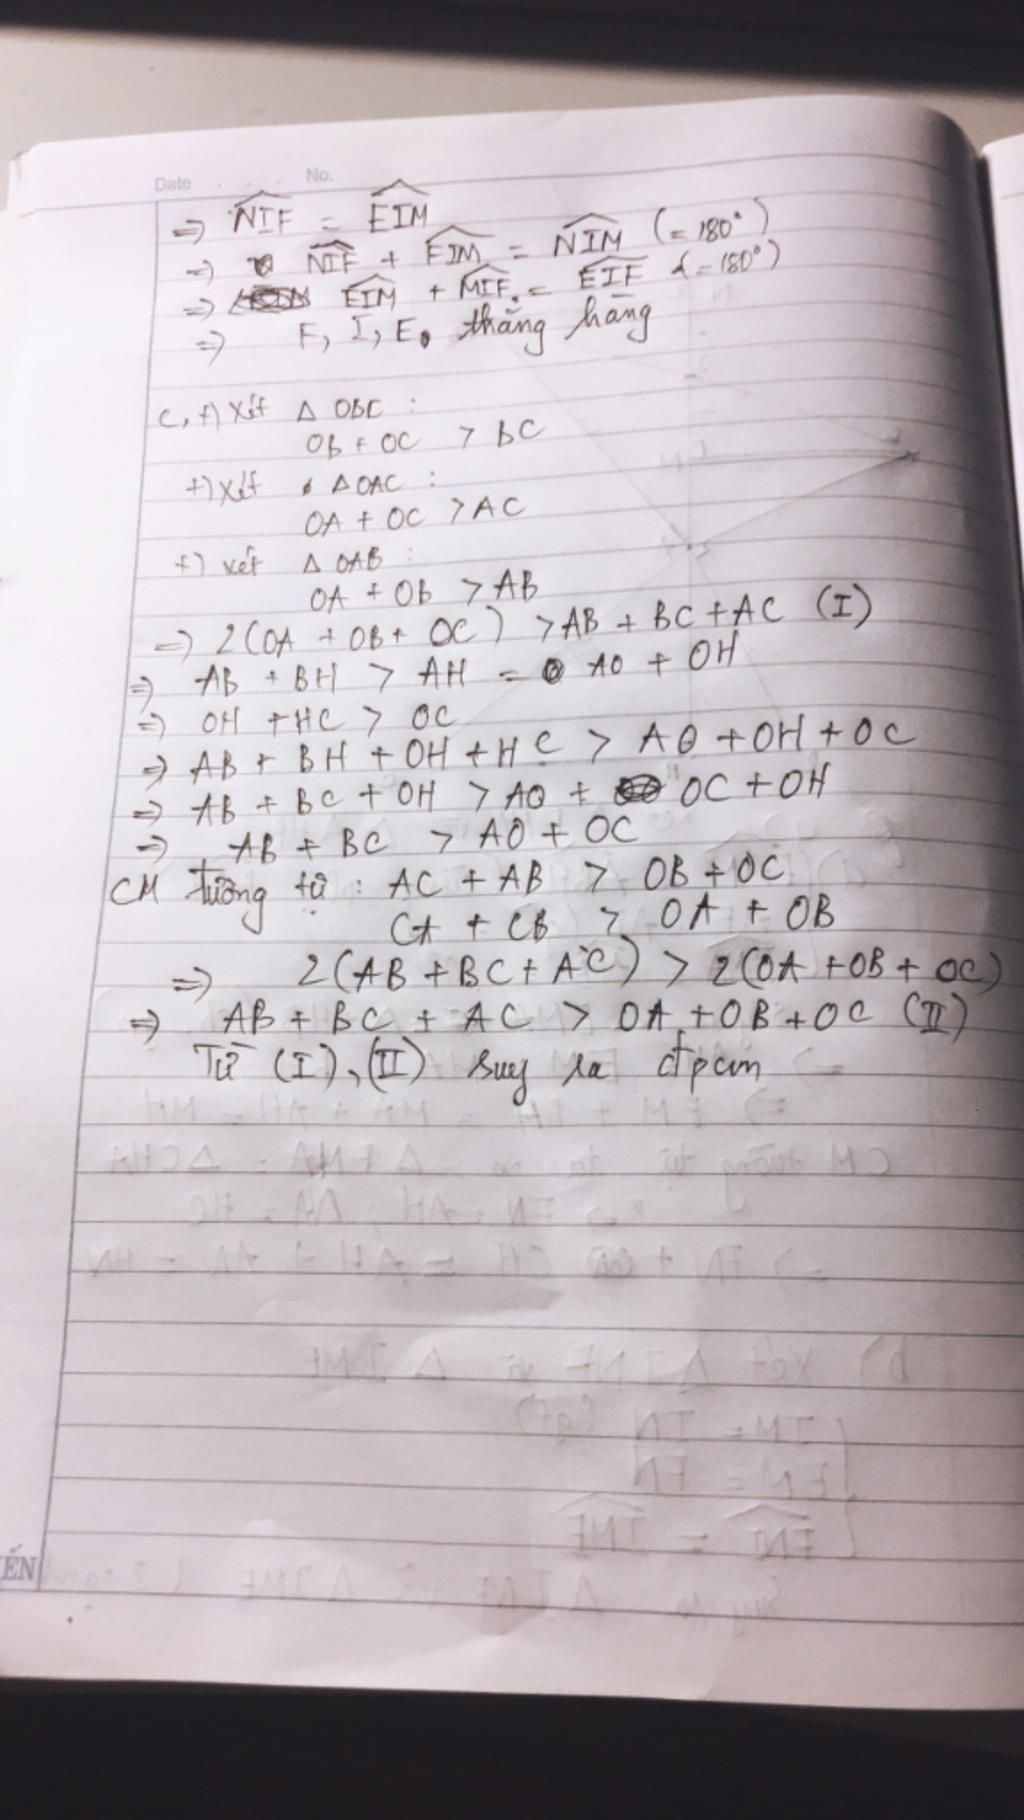 Date . . . No.
⇒ \widehat{NIF} = \widehat{EIM}
⇒ \widehat{NIF} + \widehat{FIM} = \widehat{NIM} (= 180°)
⇒ \widehat{EIM} + \widehat{MIF} = \widehat{EIF} (= 180°)
⇒ F, I, E thẳng hàng
c, +) Xét Δ OBC :
OB + OC > BC
+) Xét Δ OAC :
OA + OC > AC
+) Xét Δ OAB :
OA + OB > AB
⇒ 2(OA + OB + OC) > AB + BC + AC (I)
⇒ AB + BH > AH = AO + OH
⇒ OH + HC > OC
⇒ AB + BH + OH + HC > AO + OH + OC
⇒ AB + BC + OH > AO + OC + OH
⇒ AB + BC > AO + OC
CM tương tự : AC + AB > OB + OC
CA + CB > OA + OB
⇒ 2(AB + BC + AC) > 2(OA + OB + OC)
⇒ AB + BC + AC > OA + OB + OC (II)
Từ (I), (II) suy ra đpcm
ẾN